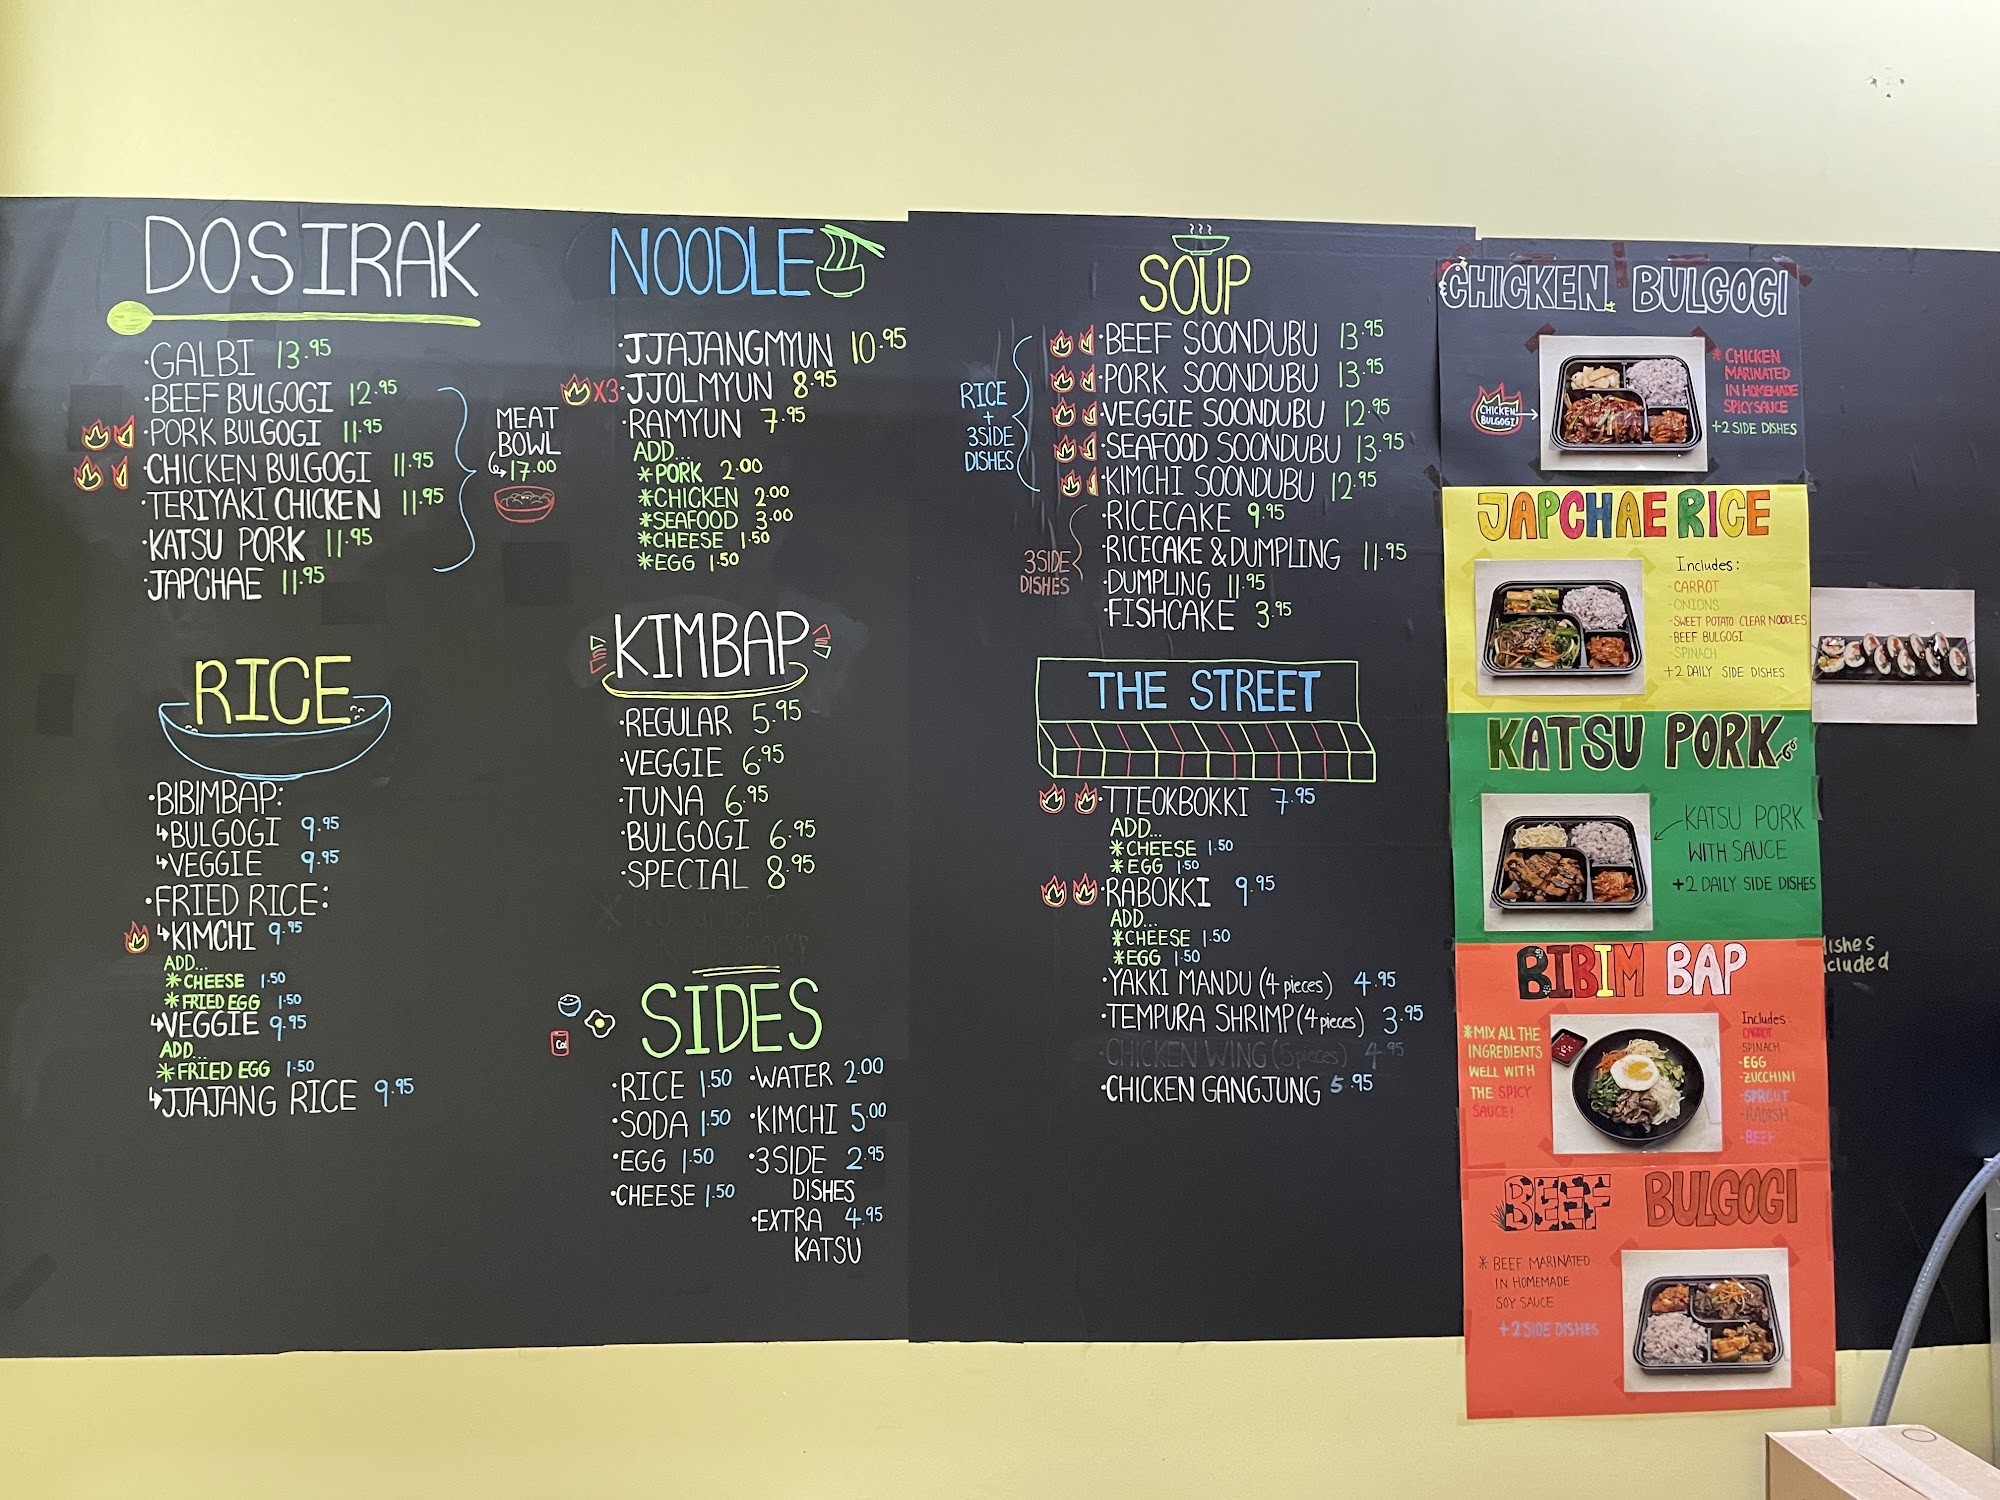 DOSIRAK
·GALBI 13.95
·BEEF BULGOGI 12.95
·PORK BULGOGI 11.95
·CHICKEN BULGOGI 11.95
·TERIYAKI CHICKEN 11.95
·KATSU PORK 11.95
·JAPCHAE 11.95
MEAT
BOWL
↳17.00
RICE
·BIBIMBAP:
↳BULGOGI 9.95
↳VEGGIE 9.95
·FRIED RICE:
↳KIMCHI 9.95
ADD...
*CHEESE 1.50
*FRIED EGG 1.50
↳VEGGIE 9.95
ADD...
*FRIED EGG 1.50
↳JJAJANG RICE 9.95
NOODLE
·JJAJANGMYUN 10.95
X3·JJOLMYUN 8.95
·RAMYUN 7.95
ADD...
*PORK 2.00
*CHICKEN 2.00
*SEAFOOD 3.00
*CHEESE 1.50
*EGG 1.50
KIMBAP
·REGULAR 5.95
·VEGGIE 6.95
·TUNA 6.95
·BULGOGI 6.95
·SPECIAL 8.95
SIDES
·RICE 1.50
·SODA 1.50
·EGG 1.50
·CHEESE 1.50
·WATER 2.00
·KIMCHI 5.00
·3 SIDE 2.95
DISHES
·EXTRA 4.95
KATSU
SOUP
·BEEF SOONDUBU 13.95
·PORK SOONDUBU 13.95
·VEGGIE SOONDUBU 12.95
·SEAFOOD SOONDUBU 13.95
·KIMCHI SOONDUBU 12.95
RICE
+
3SIDE
DISHES
·RICECAKE 9.95
·RICECAKE & DUMPLING 11.95
·DUMPLING 11.95
·FISHCAKE 3.95
3SIDE
DISHES
THE STREET
·TTEOKBOKKI 7.95
ADD...
*CHEESE 1.50
*EGG 1.50
·RABOKKI 9.95
ADD...
*CHEESE 1.50
*EGG 1.50
·YAKKI MANDU (4 pieces) 4.95
·TEMPURA SHRIMP (4 pieces) 3.95
·CHICKEN WING (5 pieces) 4.95
·CHICKEN GANGJUNG 5.95
CHICKEN BULGOGI
CHICKEN
BULGOGI
* CHICKEN
MARINATED
IN HOMEMADE
SPICY SAUCE
+2 SIDE DISHES
JAPCHAE RICE
Includes:
-CARROT
-ONIONS
-SWEET POTATO CLEAR NOODLES
-BEEF BULGOGI
-SPINACH
+2 DAILY SIDE DISHES
KATSU PORK
KATSU PORK
WITH SAUCE
+2 DAILY SIDE DISHES
BIBIM BAP
*MIX ALL THE
INGREDIENTS
WELL WITH
THE SPICY
SAUCE!
Includes:
-CARROT
-SPINACH
-EGG
-ZUCCHINI
-SPROUT
-RADISH
-BEEF
BEEF BULGOGI
* BEEF MARINATED
IN HOMEMADE
SOY SAUCE
+2 SIDE DISHES